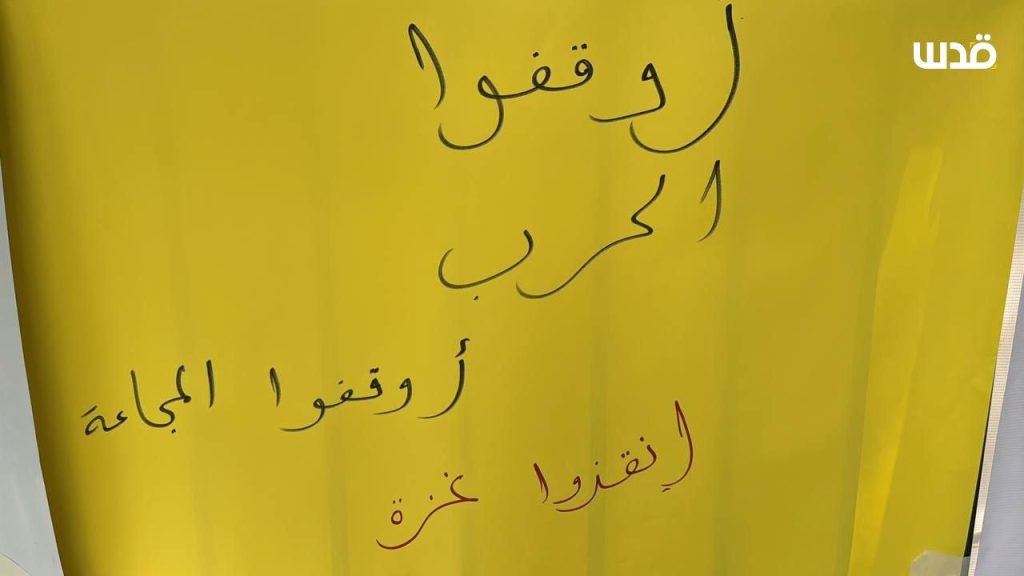 قدس
اوقفوا
الحرب
أوقفوا المجاعة
إنقذوا غزة